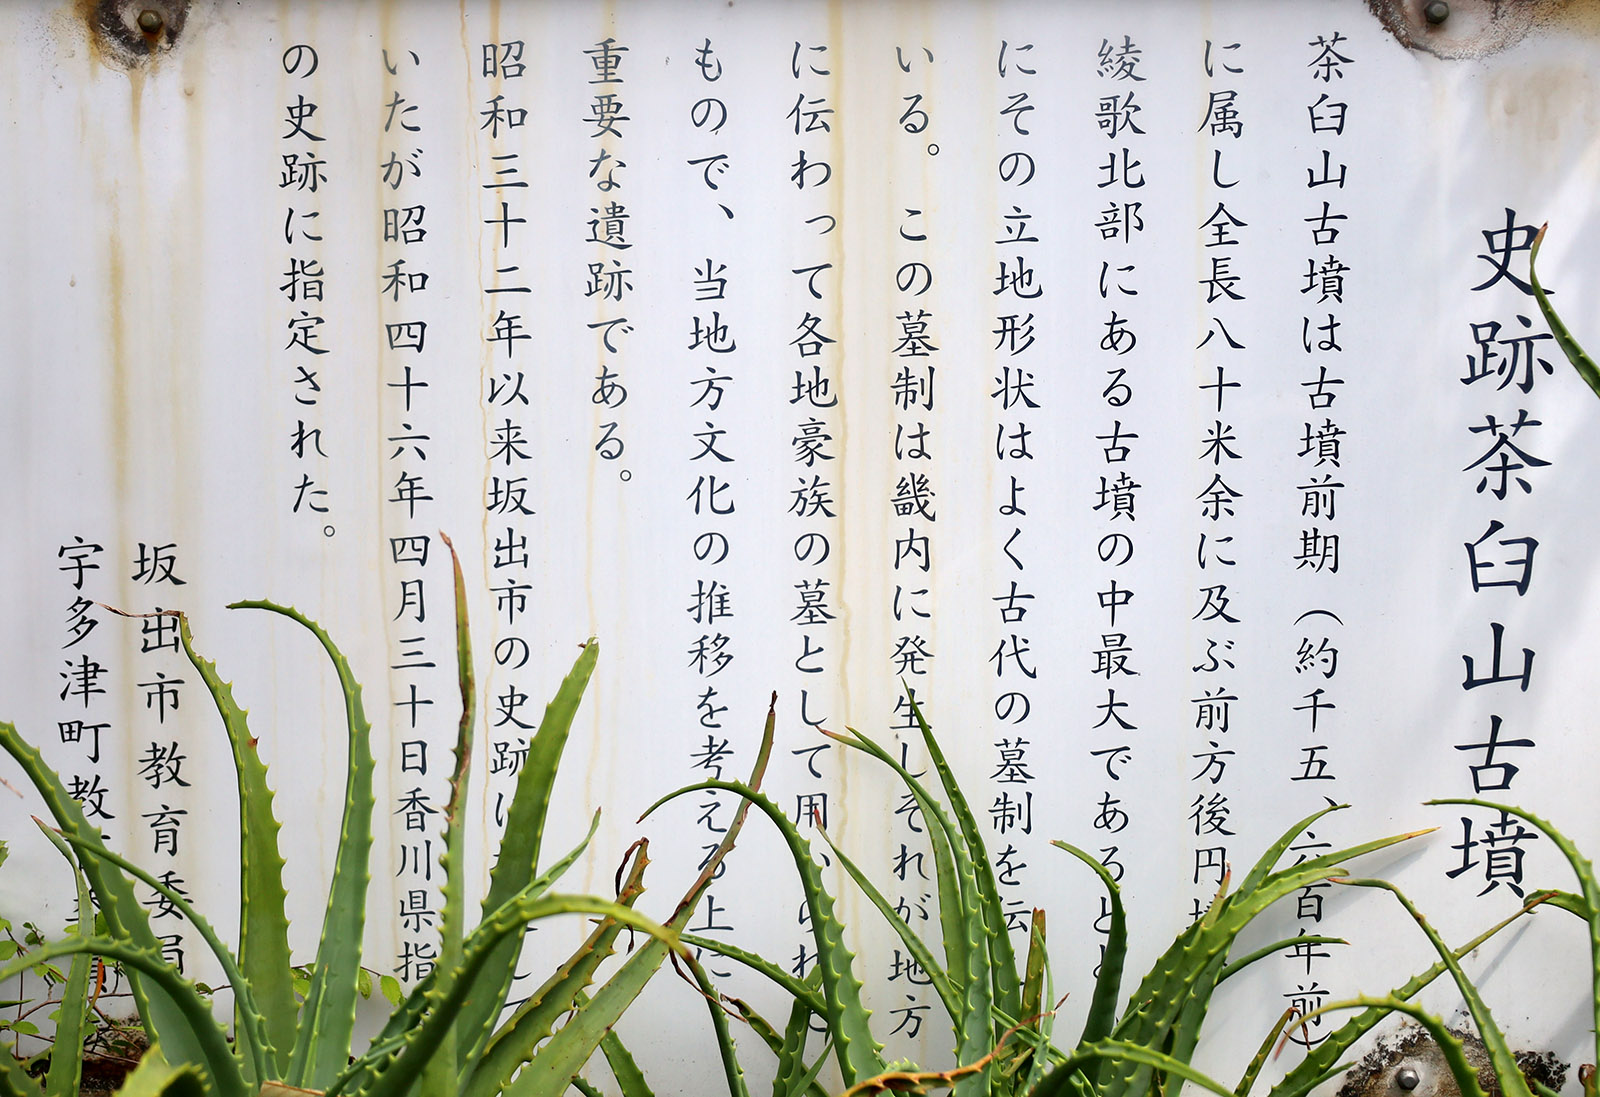 史跡茶臼山古墳
茶臼山古墳は古墳前期（約千五、六百年前）
に属し全長八十米余に及ぶ前方後円墳
綾歌北部にある古墳の中最大であると
にその立地形状はよく古代の墓制を伝
いる。この墓制は畿内に発生しそれが地方
に伝わって各地豪族の墓として用いられ
もので、当地方文化の推移を考える上に
重要な遺跡である。
昭和三十二年以来坂出市の史跡
いたが昭和四十六年四月三十日香川県指
の史跡に指定された。
坂出市教育委員
宇多津町教育委員